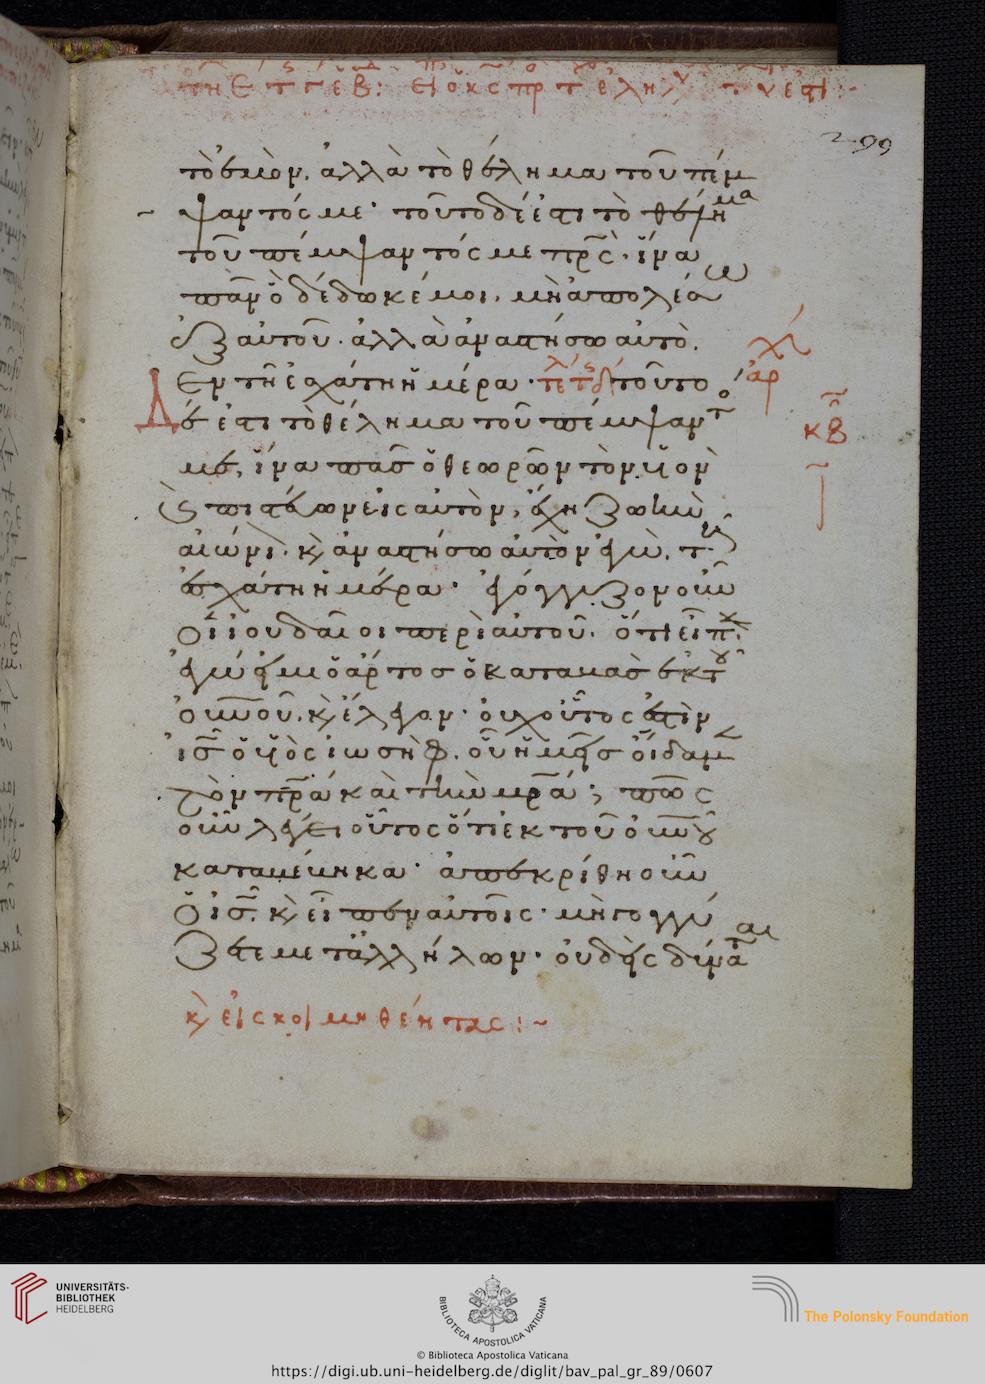 299
τὸ ἐμὸν. ἀλλὰ τὸ θέλημα τοῦ πέμ
ψαντός με· τοῦτο δέ ἐστι τὸ θέλημα
τοῦ πέμψαντός με πρς· ἵνα
πᾶν ὃ δέδωκέ μοι. μὴ ἀπολέσω
ἐξ αὐτοῦ. ἀλλὰ ἀναστήσω αὐτὸ.
Ἐν τῆ ἐσχάτη ἡμέρα· τοῦτο
δέ ἐστι τὸ θέλημα τοῦ πέμψαντο
με, ἵνα πᾶσ ὁ θεωρῶν τὸν υἱὸν
καὶ πιστεύων εἰς αὐτὸν, ἔχη ζωὴν
αἰώνι. κ ἀναστήσω αὐτὸν ἐγὼ. τῆ
ἐσχάτη ἡμέρα· ἐγόγγυζον οὖν
οἱ ἰουδαῖοι περὶ αὐτοῦ. ὅτι εἶπ
ἐγώ εἰμι ὁ ἄρτοσ ὁ καταβὰσ ἐκ τοῦ
οὐνοῦ. κ ἔλεγον· οὐχ οὗτος ἐστὶν
ισ ὁ υἱὸς ἰωσὴφ. οὗ ἡμεῖσ οἴδαμε
τὸν πρα καὶ τὴν μρα; πῶς
οὖν λέγει οὗτος ὅτι ἐκ τοῦ οὐνοῦ
καταβέβηκα· ἀπεκρίθη οὖν
ὁ ισ. κ εἶπεν αὐτοῖς· μὴ γογγύ
ζετε μετἀλλήλων· οὐδεὶς δύναται
κ εἰς κοιμηθέντας:~
UNIVERSITÄTS-
BIBLIOTHEK
HEIDELBERG
BIBLIOTECA APOSTOLICA VATICANA
The Polonsky Foundation
© Biblioteca Apostolica Vaticana
https://digi.ub.uni-heidelberg.de/diglit/bav_pal_gr_89/0607